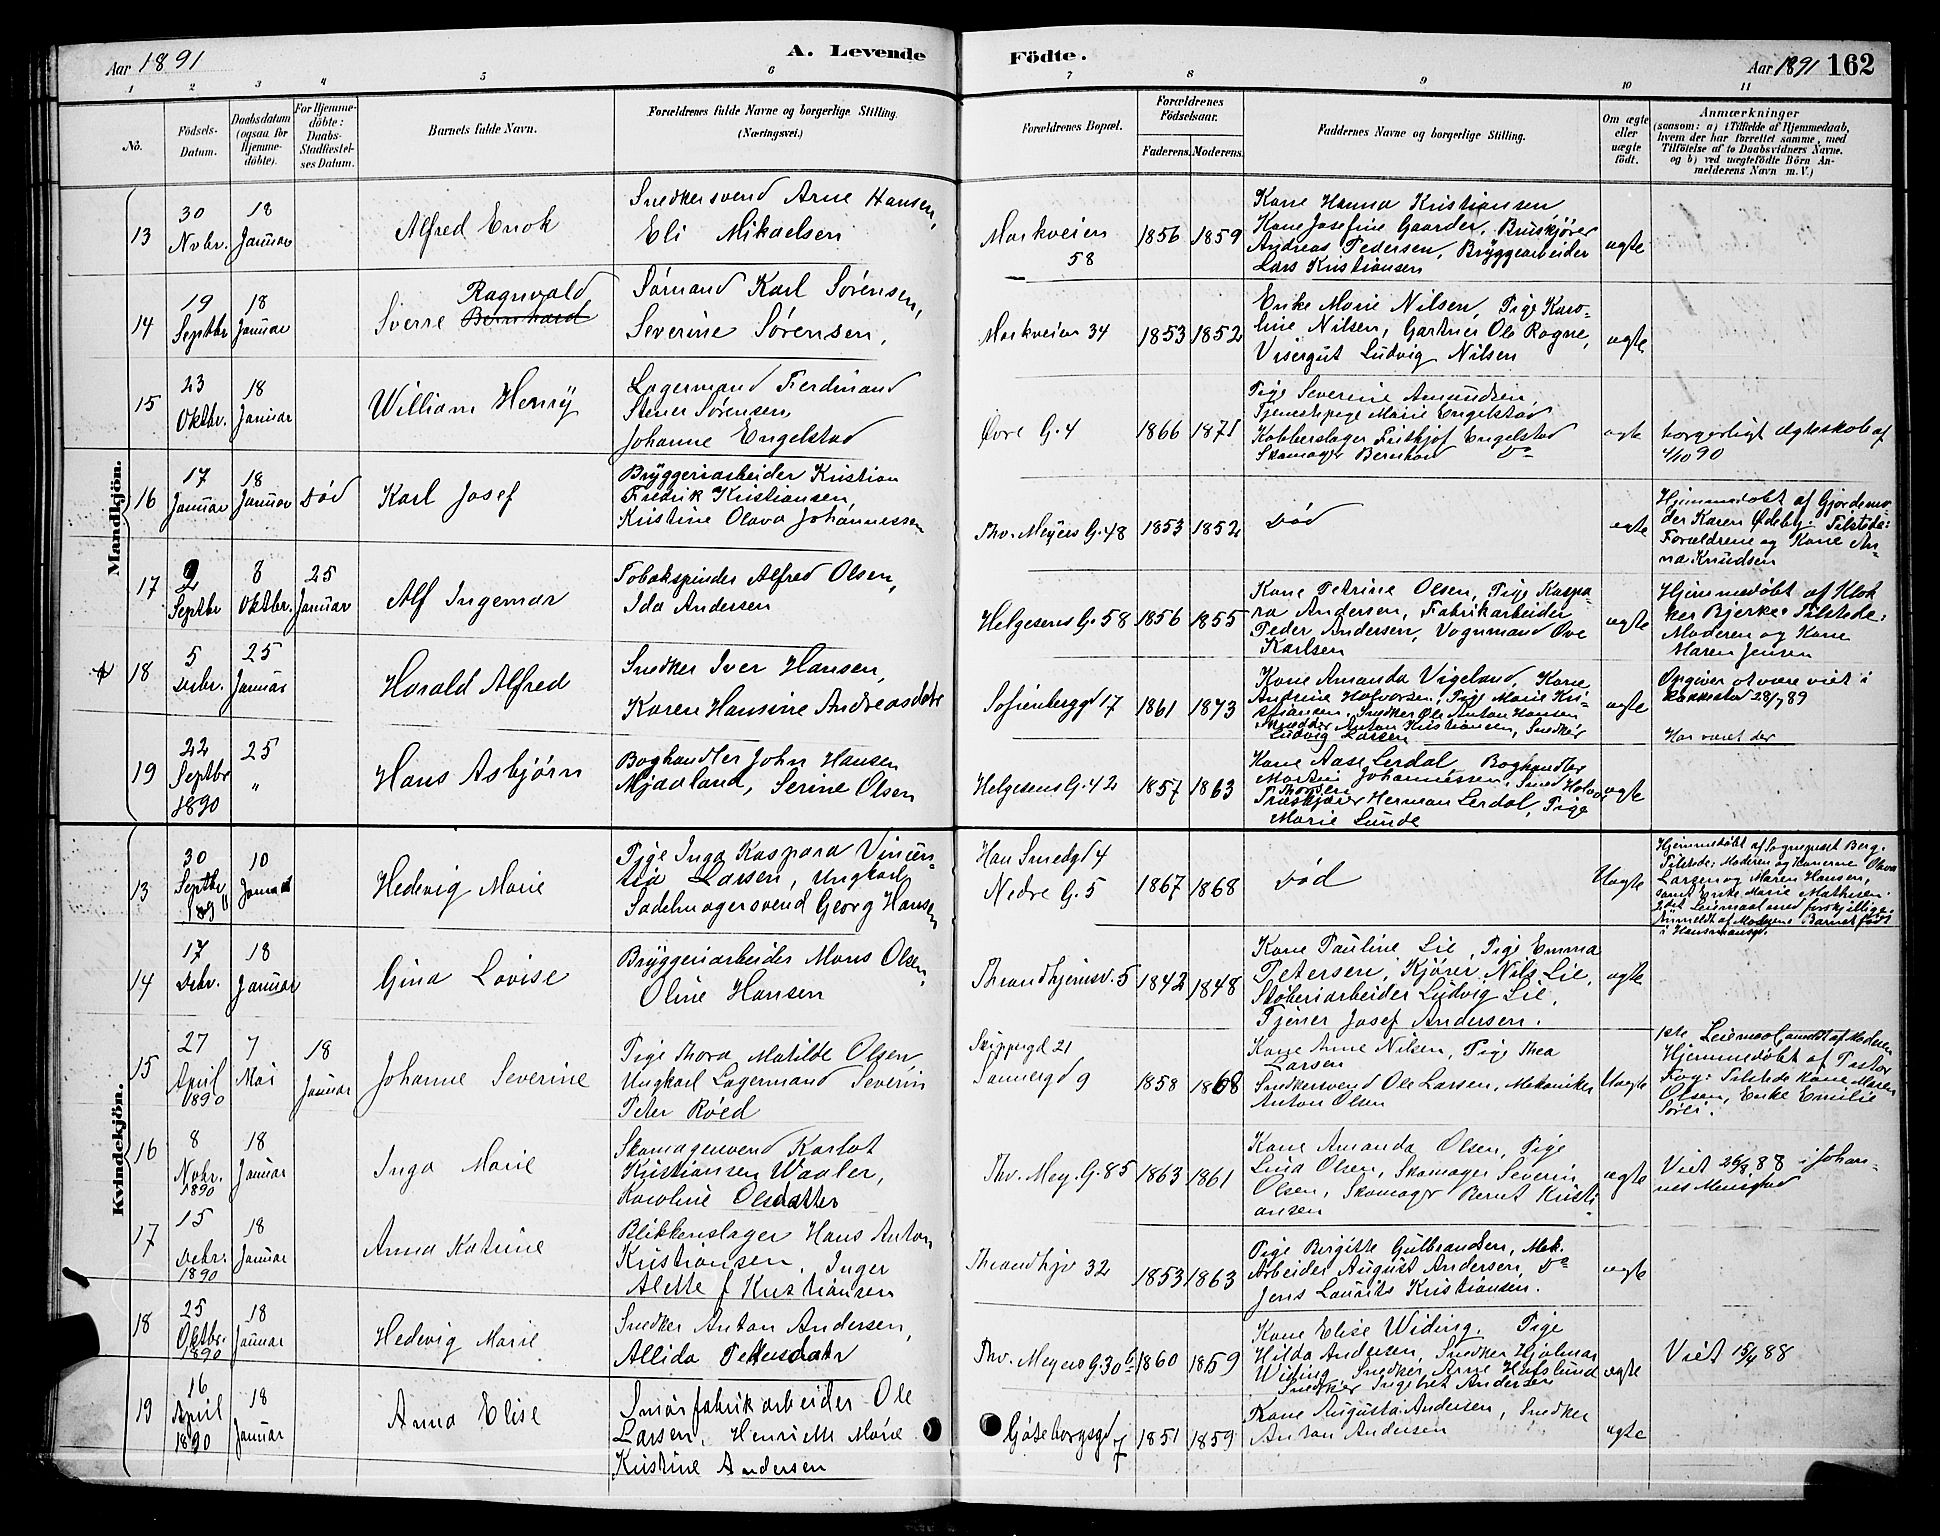 Aar 1891
A. Levende
Födte.
Aar 1891 162
1 2 3 4 5 6 7 8 9 10 11
No.
Födsels-
Datum.
Daabsdatum
(ogsaa for
Hjemme-
döbte).
For Hjemme-
döbte:
Daabs-
Stadfæstel-
ses Datum.
Barnets fulde Navn.
Forældrenes fulde Navne og borgerlige Stilling.
(Næringsvei.)
Forældrenes Bopæl.
Forældrenes
Födselsaar.
Faderens. Moderens.
Faddernes Navne og borgerlige Stilling.
Om ægte
eller
uægte
födt.
Anmærkninger
(saasom: a) i Tilfælde af Hjemmedaab,
hvem der har forrettet samme, med
Tilföielse af to Daabsvidners Navne.
og b) ved uægtefödte Börn An-
melderens Navn m. V.)
Mandkjön.
13
30
Novbr.
18
Januar
Alfred Enok
Snedkersvend Arne Hansen,
Eli Mikaelsen
Markveien
58
1856 1859
Kone Hanna Kristiansen
Kone Josefine Gaarder, Bruskjører
Andreas Pedersen, Bryggearbeider
Lars Kristiansen
ægte
14
19
Septbr
18
Januar
Ragnvald
Sverre Bernhard
Sømand Karl Sørensen,
Severine Sørensen,
Markveien 34
1853 1852
Enke Marie Nilsen, Pige Karo-
line Nilsen, Gartner Ole Rogne,
Visergut Ludvig Nilsen
ægte
15
23
Oktbr.
18
Januar
William Henry
Lagermand Ferdinand
Stener Sørensen
Johanne Engelstad
Øvre G. 4
1866 1871
Pige Severine Amundsen,
Tjenestepige Marie Engelstad
Kobberslager Fritkjof Engelstad
Skomager Bernhard Do
ægte
borgerligt Ægteskab af
4/10 90
16
17
Januar
18
Januar
Død
Karl Josef
Bryggeriarbeider Kristian
Fredrik Kristiansen,
Kristine Olava Johannessen
Thv. Meyers G. 48
1853 1852
Død
ægte
Hjemmedøbt af Gjordemo-
der Karen Ødeby. Tilstede:
Forældrene og Kone An-
na Knudsen
17
2
Septbr
8
Oktbr.
25
Januar
Alf Ingemar
Tobakspinder Alfred Olsen,
Ida Andersen
Helgesens G. 58
1856 1855
Kone Petrine Olsen, Pige Kaspa-
ra Andersen, Fabrikarbeider
Peder Andersen, Vognmand Ove
Karlsen
ægte
Hjemmedøbt af Klok
ker Bjerke. Tilstede:
Moderen og Kone
Maren Jensen
18
5
Debr.
25
Januar
Harald Alfred
Snedker Iver Hansen,
Karen Hansine Andreasdatr
Sofienberggd 17
1861 1873
Kone Amanda Vigeland, Kone
Andrine Halvorsen, Pige Marie Kri-
stiansen, Snedker Ole Anton Hansen
Skrædder Anton Kristiansen, Snedker
Ludvig Larsen
ægte
Opgiver at være viet i
Rakkestad 28/7 89
Har været der
19
22
Septbr
1890
25
"
Hans Asbjørn
Boghandler John Hansen
Mjaaland, Serine Olsen
Helgesens G. 42
1857 1863
Kone Aase Lerdal, Boghandler
Martin Johannessen, Smed Halvor
Thorsen
Træskjærer Herman Lerdal, Pige
Marie Lunde
ægte
Kvindekjön.
13
30
Septbr
Januar
10
Hedevig Marie
Pige Inga Kaspara Vincen-
tia Larsen, Ungkarl
Sadelmagersvend Georg Hansen
Han Smedgd 4
Nedre G. 5
1867 1868
Død
Uægte
Hjemmedøbt af Sognepræst Berg.
Tilstede: Moderen og Konerne Olava
Larsen og Maren Hansen,
samt Enke Marie Mathisen.
2det Leiermaal med forskjellige.
Anmeldt af Moderen. Barnet født
i Hansmansgd.
14
17
Debr.
18
Januar
Gina Lovise
Bryggeriarbeider Mons Olsen,
Oline Hansen
Throndhjemsv. 5
1842 1848
Kone Pauline Lie, Pige Emma
Petersen, Kjører Nils Lie,
Støberiarbeider Ludvig Lie,
Tjener Josef Andersen.
ægte
15
27
April
1890
7
Mai
18
Januar
Johanne Severine
Pige Thora Matilde Olsen,
Ungkarl Lagermand Severin
Peter Røed
Skippergd 21
Sannergd 9
1858 1868
Kone Anne Nilsen, Pige Thea
Larsen
Snedkersvend Ole Larsen, Mekaniker
Anton Olsen
Uægte
1ste Leiermaal anmeldt af Moderen
Hjemmedøbt af Pastor
Fog. Tilstede Kone Maren
Olsen, Enke Emilie
16
8
Novbr.
1890
18
Januar
Inga Marie
Skomagersvend Karlot
Kristiansen Waaler,
Karoline Olsdatter
Thv. Mey. G. 85
1863 1861
Kone Amanda Olsen, Pige
Lina Olsen, Skomager Severin
Olsen, Skomager Bernt Kristi
ansen
ægte
Viet 26/8 88 i Johan-
nes Menighed
17
15
Debr.
1890
18
Januar
Anna Katrine
Blikkenslager Hans Anton
Kristiansen, Inger
Alette f Kristiansen
Throndhjv 32
1853 1863
Pige Birgitte Gulbrandsen, Mek.
Arbeider August Andersen, Do
Jens Lauritz Kristiansen.
ægte
18
25
Oktbr.
1890
18
Januar
Hedevig Marie
Snedker Anton Andersen,
Allida Petersdatr
Thv. Meyers G. 30 b
1860 1859
Kone Elise Widing, Pige
Hilda Andersen, Snedker Hjalmar
Widing, Snedker Arne Hafslund
Snedker Ingebret Andersen
ægte
Viet 15/4 88
19
16
April
1890
18
Januar
Anna Elise
Smørfabrikarbeider Ole
Larsen, Henriette Marie
Kristine Andersen
Gøteborgsgd
7
1851 1859
Kone Augusta Andersen, Snedker
Anton Andersen
ægte